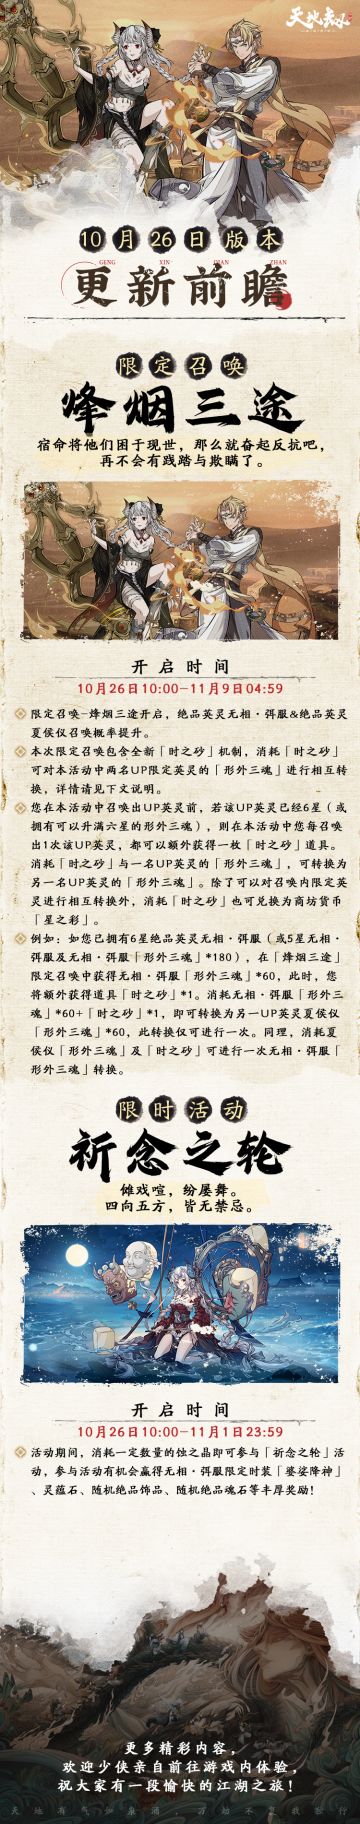 天地劫
10月26日版本
GENG XIN QIAN ZHAN
更新前瞻
限定召唤
烽烟三途
宿命将他们困于现世，那么就奋起反抗吧，
再不会有践踏与欺瞒了。
开启时间
10月26日10:00-11月9日04:59
限定召唤-烽烟三途开启，绝品英灵无相·弭服&绝品英灵
夏侯仪召唤概率提升。
本次限定召唤包含全新「时之砂」机制，消耗「时之砂」
可对本活动中两名UP限定英灵的「形外三魂」进行相互转
换，详情请见下文说明。
您在本活动中召唤出UP英灵前，若该UP英灵已经6星（或
拥有可以升满六星的形外三魂），则在本活动中您每召唤
出1次该UP英灵，都可以额外获得一枚「时之砂」道具。
消耗「时之砂」与一名UP英灵的「形外三魂」，可转换为
另一名UP英灵的「形外三魂」。除了可以对召唤内限定英
灵进行相互转换外，消耗「时之砂」也可兑换为商坊货币
「星之彩」。
例如：如您已拥有6星绝品英灵无相·弭服（或5星无相·
弭服及无相·弭服「形外三魂」*180），在「烽烟三途」
限定召唤中获得无相·弭服「形外三魂」*60，此时，您
将额外获得道具「时之砂」*1。消耗无相·弭服「形外三
魂」*60+「时之砂」*1，即可转换为另一UP英灵夏侯仪
「形外三魂」*60，此转换仅可进行一次。同理，消耗夏
侯仪「形外三魂」及「时之砂」可进行一次无相·弭服「
形外三魂」转换。
限时活动
祈念之轮
傩戏喧，纷屡舞。
四向五方，皆无禁忌。
开启时间
10月26日10:00-11月1日23:59
活动期间，消耗一定数量的蚀之晶即可参与「祈念之轮」活
动，参与活动有机会赢得无相·弭服限定时装「婆娑降神」
、灵蕴石、随机绝品饰品、随机绝品魂石等丰厚奖励！
更多精彩内容，
欢迎少侠亲自前往游戏内体验，
祝大家有一段愉快的江湖之旅！